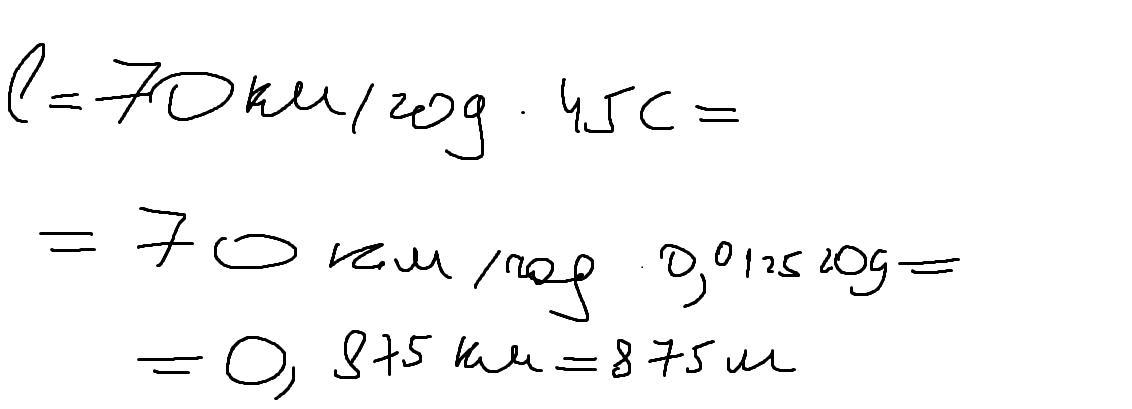 l = 70 км/год · 45 с =
= 70 км/год · 0,0125 год =
= 0,875 км = 875 м